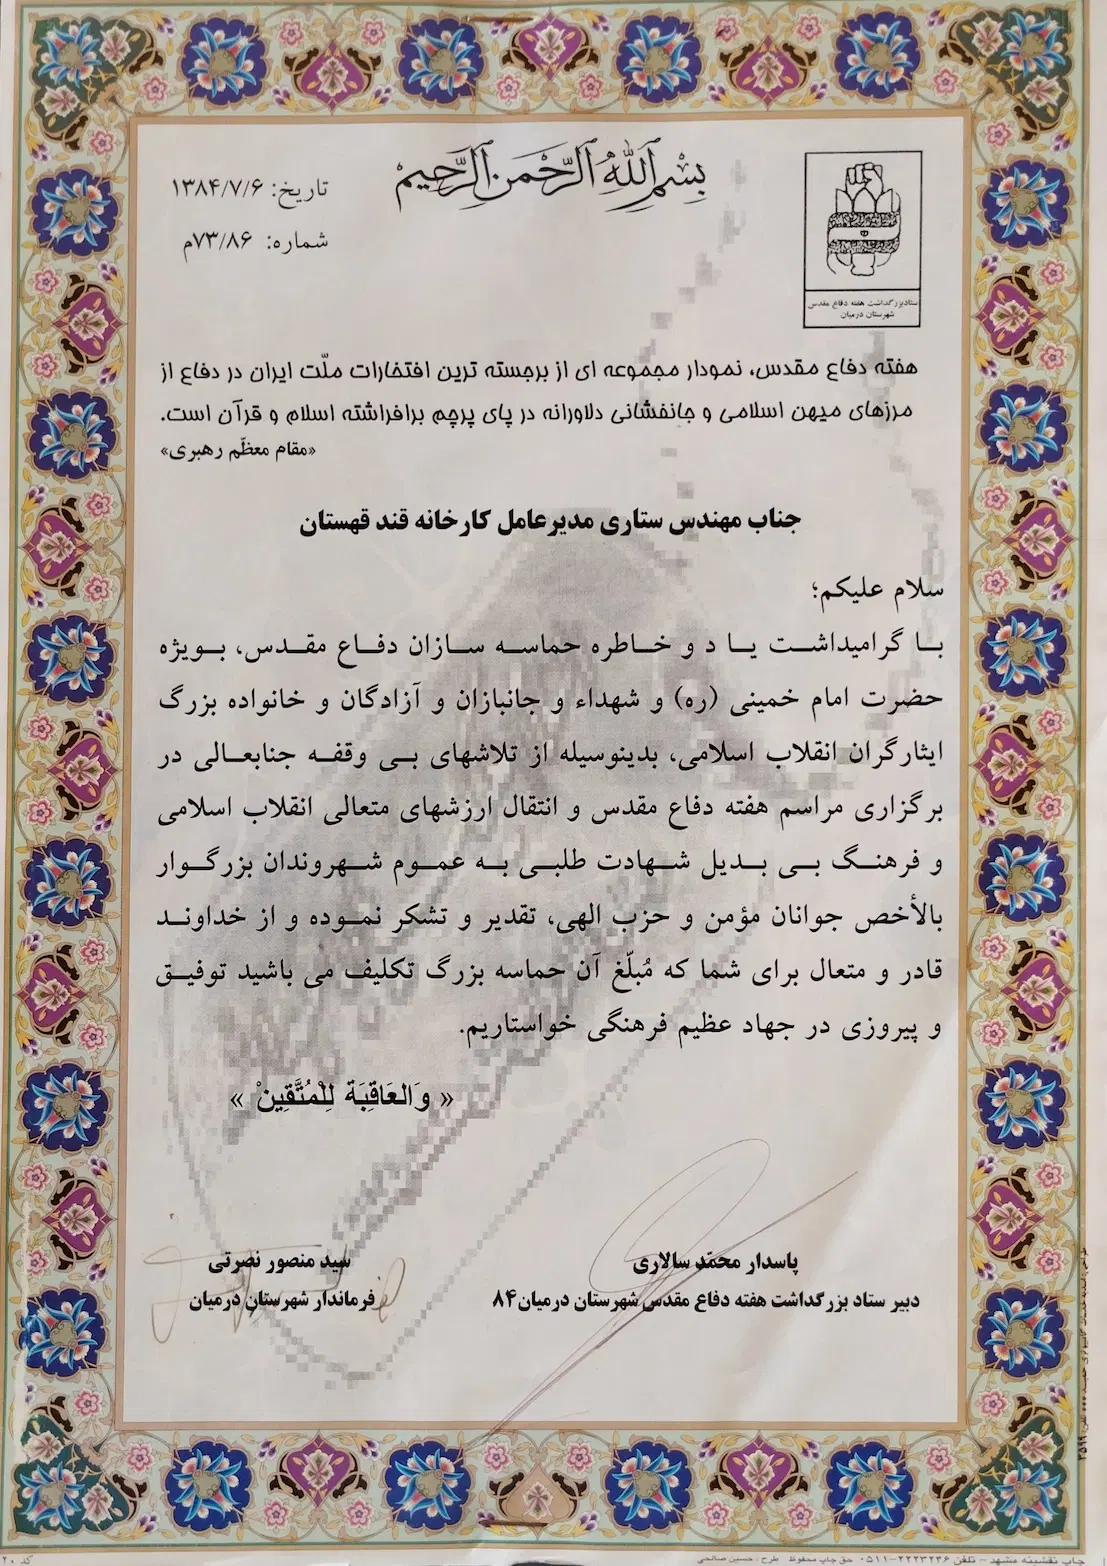 بسم الله الرحمن الرحیم
تاریخ: ۱۳۸۴/۷/۶
شماره: ۷۳/۸۶م
ستاد بزرگداشت هفته دفاع مقدس
شهرستان درمیان
هفته دفاع مقدس، نمودار مجموعه ای از برجسته ترین افتخارات ملّت ایران در دفاع از
مرزهای میهن اسلامی و جانفشانی دلاورانه در پای پرچم برافراشته اسلام و قرآن است.
«مقام معظّم رهبری»
جناب مهندس ستاری مدیرعامل کارخانه قند قهستان
سلام علیکم؛
با گرامیداشت یا د و خاطره حماسه سازان دفاع مقدس، بویژه
حضرت امام خمینی (ره) و شهداء و جانبازان و آزادگان و خانواده بزرگ
ایثارگران انقلاب اسلامی، بدینوسیله از تلاشهای بی وقفه جنابعالی در
برگزاری مراسم هفته دفاع مقدس و انتقال ارزشهای متعالی انقلاب اسلامی
و فرهنگ بی بدیل شهادت طلبی به عموم شهروندان بزرگوار
بالأخص جوانان مؤمن و حزب الهی، تقدیر و تشکر نموده و از خداوند
قادر و متعال برای شما که مُبلّغ آن حماسه بزرگ تکلیف می باشید توفیق
و پیروزی در جهاد عظیم فرهنگی خواستاریم.
« وَالعَاقِبَة لِلْمُتَّقِینْ »
پاسدار محمّد سالاری
دبیر ستاد بزرگداشت هفته دفاع مقدس شهرستان درمیان۸۴
سید منصور نصرتی
فرماندار شهرستان درمیان
چاپ نقشینه مشهد - تلفن ۲۲۲۳۲۳۶-۰۵۱۱ حق چاپ محفوظ طرح: حسین صالحی
کد ۲۰